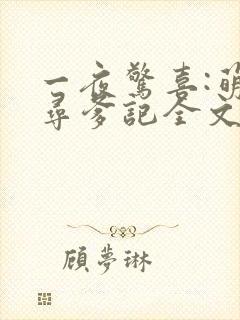 一夜驚喜:萌
尋爹記全文
顧夢琳